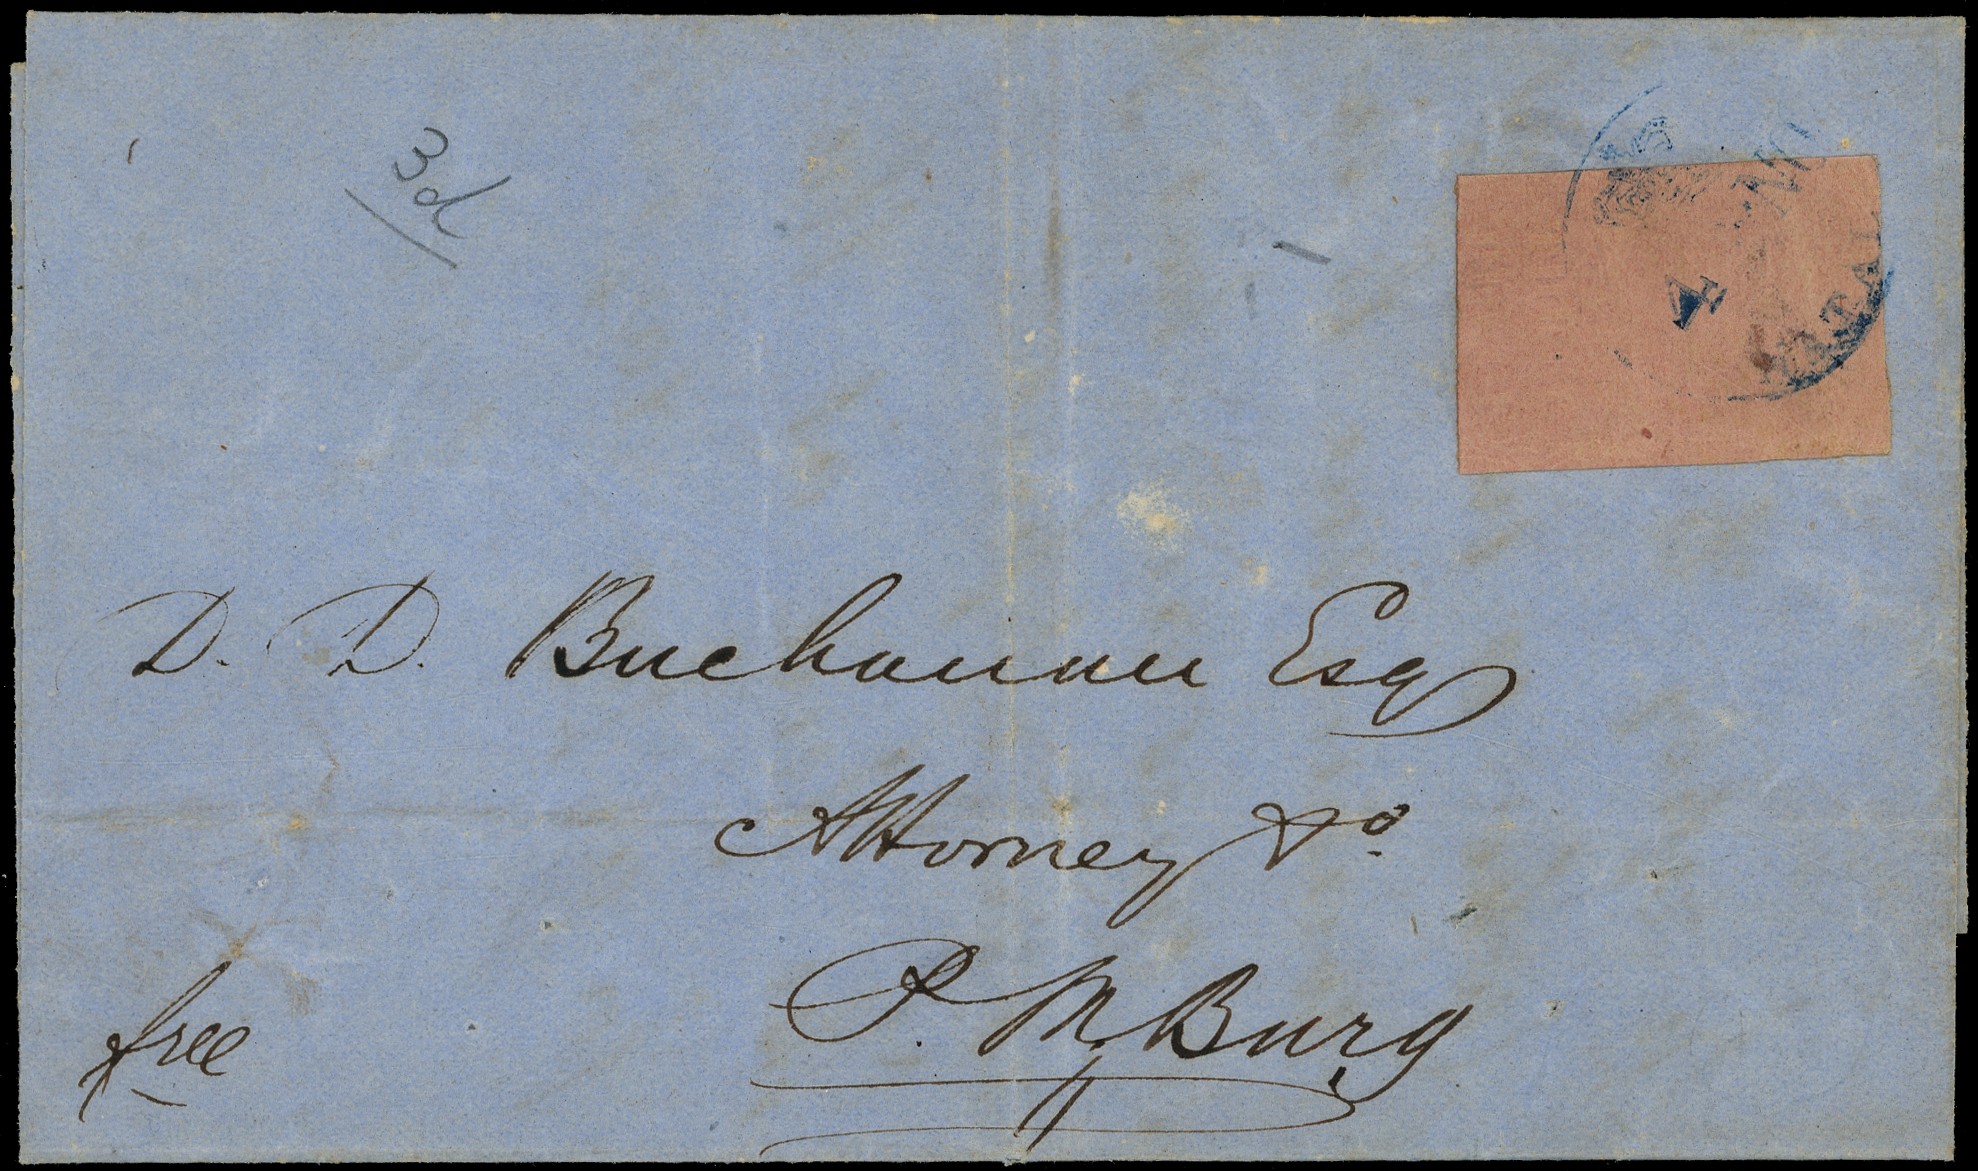 3d
4
NATAL
D. D. Buchanan Esq
Attorney &c.
P. M. Burg
free